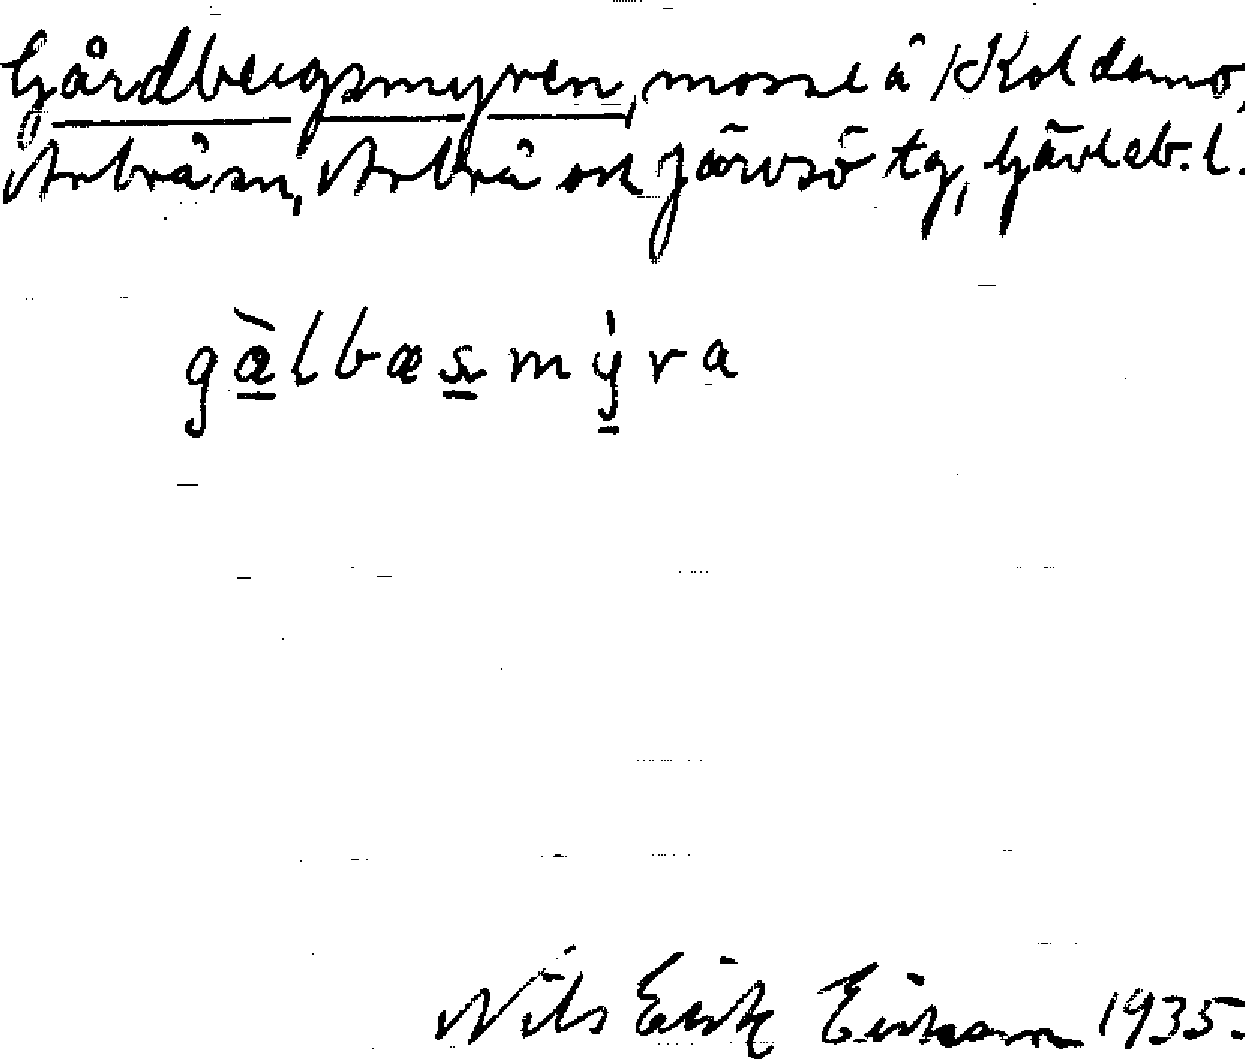 Gårdbergsmyren, mosse å Koldemo,
Arbrå sn, Arbrå och Järvsö tg, Gävleb. l.
gàlbæsmýra
Nils Erik Eriksson 1935.